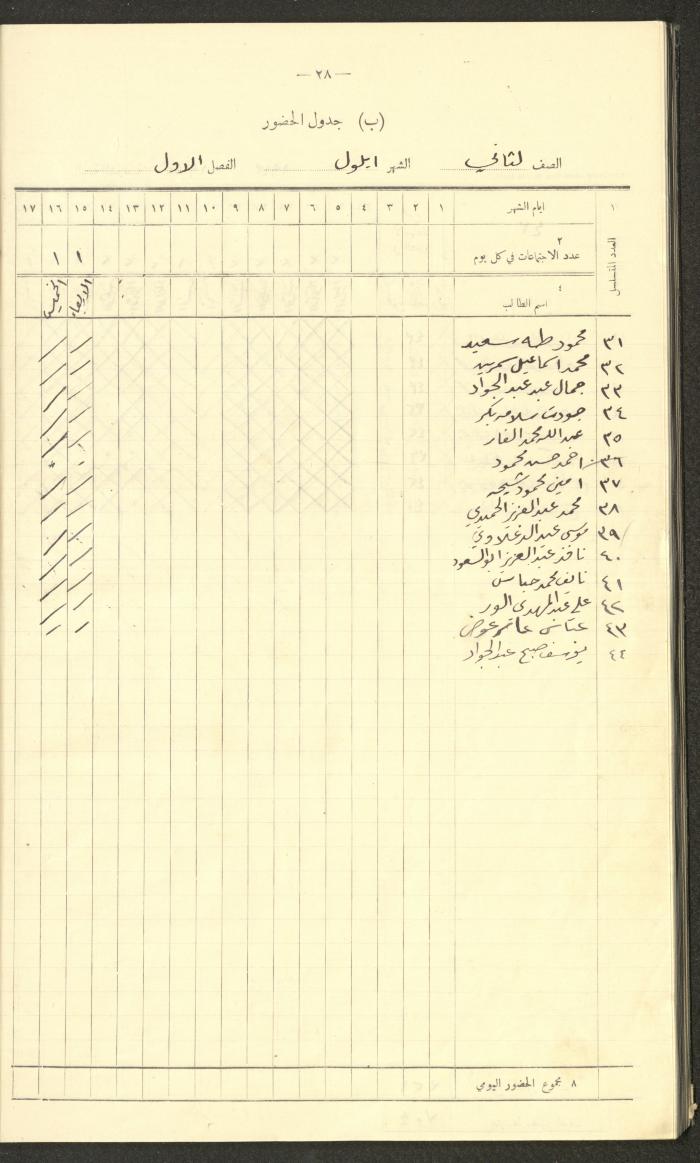 — ٢٨ —
(ب) جدول الحضور
الصف الثاني الشهر ايلول الفصل الاول
١ ايام الشهر ١ ٢ ٣ ٤ ٥ ٦ ٧ ٨ ٩ ١٠ ١١ ١٢ ١٣ ١٤ ١٥ ١٦ ١٧
العدد المتسلسل
٢
عدد الاجتماعات في كل يوم ١ ١
٤
اسم الطالب الاربعاء الخميس
٣١ محمود طه سعيد
٣٢ محمد اسماعيل سمرين
٣٣ جمال عبد عبد الجواد
٣٤ جودت سلامه بكر
٣٥ عبد الله محمد الفار
٣٦ احمد حسن محمود
٣٧ امين محمود شيحه
٣٨ محمد عبد العزيز الحميدي
٣٩ موسى عبد
٤٠ نافذ عبد العزيز ابو السعود
٤١ نايف محمد عباس
٤٢ علي عبد المهدي
٤٣ عباس عوض
٤٤ يوسف صبح عبد الجواد
٨ مجموع الحضور اليومي